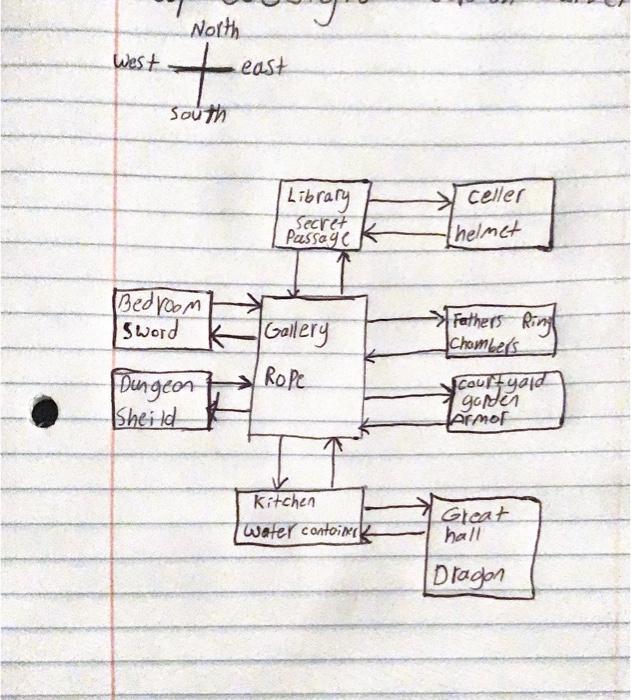 North
west
east
south
Library
secret
Passage
celler
helmet
Bedroom
Sword
Gallery
Rope
Fathers Ring
Chambers
Dungeon
Sheild
courtyard
garden
Armor
Kitchen
water container
Great
hall
Dragon